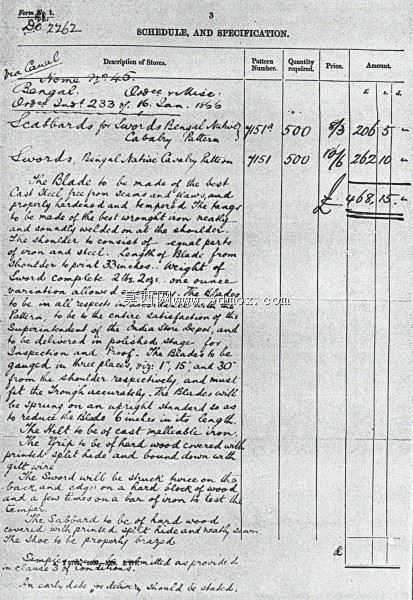 Form No. 1.
D.C. 2262
3
SCHEDULE, AND SPECIFICATION.
Description of Stores. Pattern Number. Quantity required. Price. Amount.
via Canal
£ s. d.
Bengal. Ordce & Misc.
16. Jan.
Scabbards for Swords Bengal Native Cavalry Pattern 7151a 500 8/3 206 5 "
Swords, Bengal Native Cavalry Pattern 7151 500 10/6 262 10 "
£ 468 15 "
The Blade to be made of the best
Cast Steel, free from seams and flaws, and
properly hardened and tempered. The tangs
to be made of the best wrought iron neatly
and soundly welded on at the shoulder.
The shoulder to consist of equal parts
of iron and steel. Length of Blade from
Shoulder to point 33 inches. Weight of
Sword complete 2 lbs. 2 ozs. one ounce
variation allowed The Blades
to be in all respects in accordance with the
Pattern, to be to the entire satisfaction of the
Superintendent of the India Store Depot, and
to be delivered in polished stage for
Inspection and Proof. The Blades to be
gauged in three places, viz: 1", 15", and 30"
from the shoulder respectively, and must
fit the Trough accurately. The Blades will
be sprung on an upright standard so as
to reduce the Blade 6 inches in its length.
The Hilt to be of cast malleable iron.
The Grip to be of hard wood covered with
printed split hide and bound down with
gilt wire
The Sword will be struck twice on the
back and edge on a hard block of wood
and a few times on a bar of iron to test the
temper.
The Scabbard to be of hard wood
covered with printed split hide and neatly sewn
The Shoe to be properly brazed.
£
submitted as provided
in clause 3 of Conditions.
An early date for delivery should be stated.